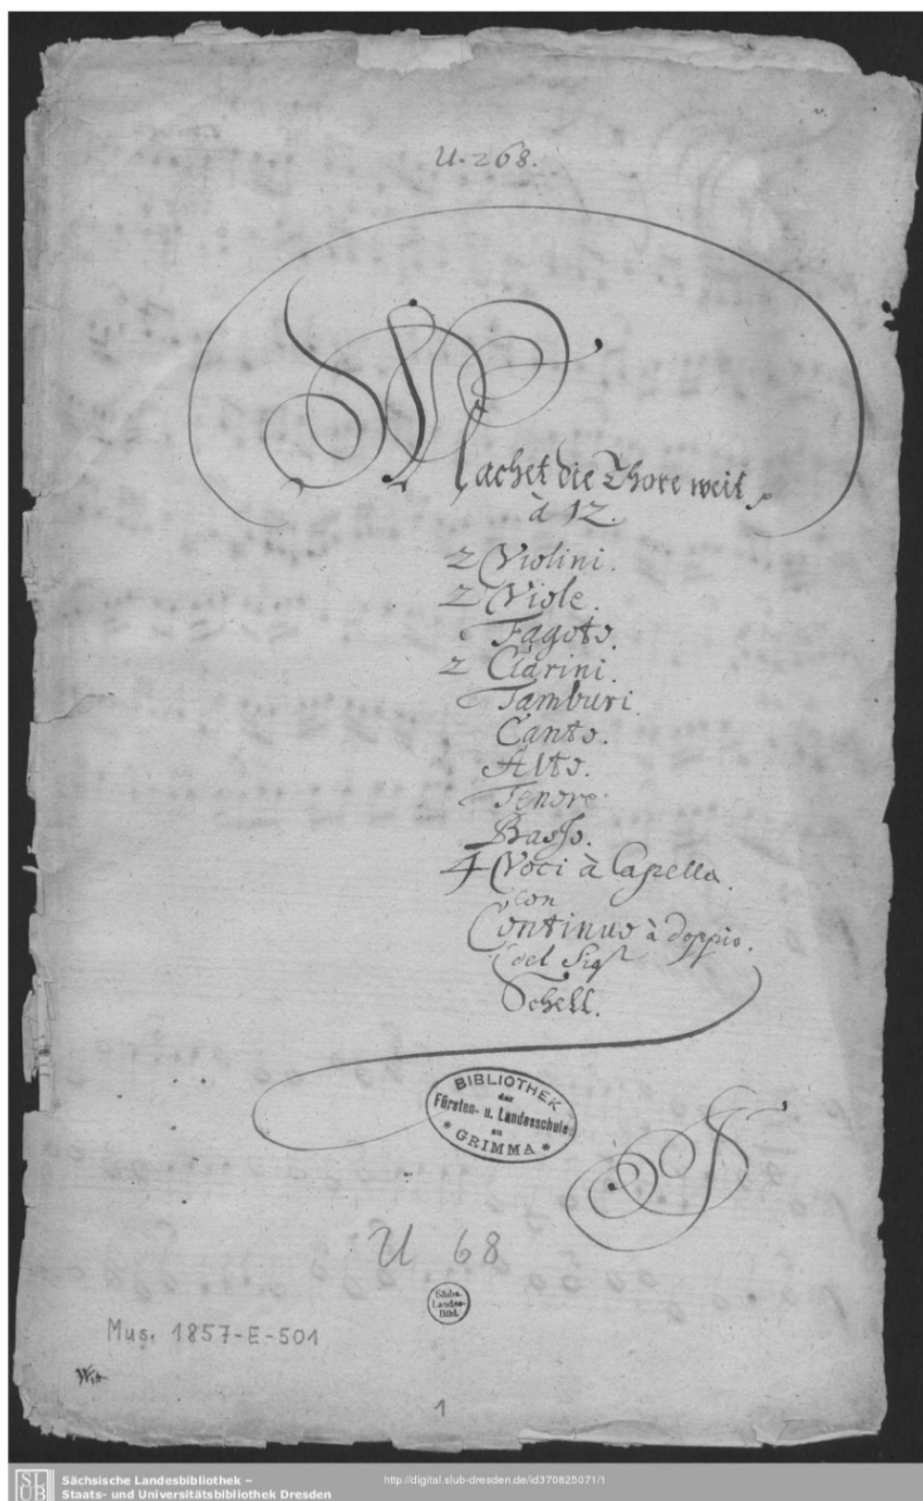 U. 268.
Machet die Thore weit
à 12.
2 Violini.
2 Viole.
Fagoto.
2 Clarini.
Tamburi.
Canto.
Alto.
Tenore
Basso.
4 Voci à Capella.
con
Continuo à doppio.
del Sigr
Schell.
BIBLIOTHEK
der
Fürsten- u. Landesschule
zu
* GRIMMA *
U 68
Sächs.
Landes-
Bibl.
Mus. 1857-E-501
1
SLUB
Sächsische Landesbibliothek –
Staats- und Universitätsbibliothek Dresden
http://digital.slub-dresden.de/id370825071/1